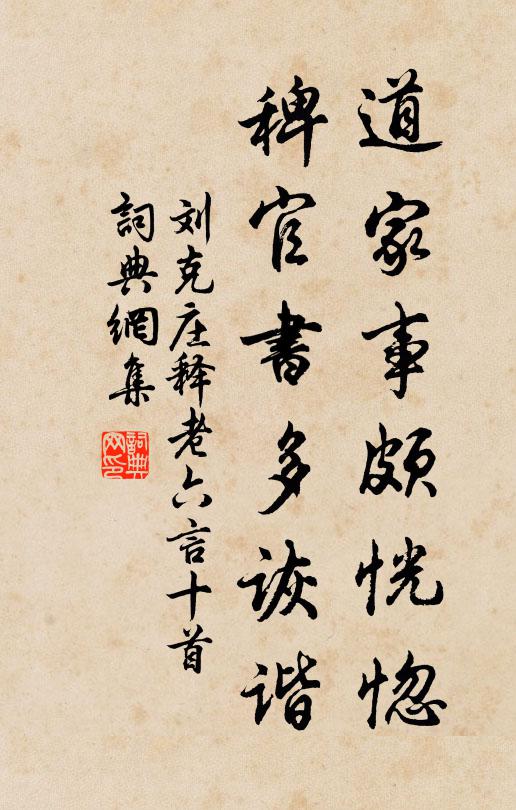 道家事頗恍惚
稗官書多诙谐
刘克庄释老六言十首
詞典網集
詞典
网印